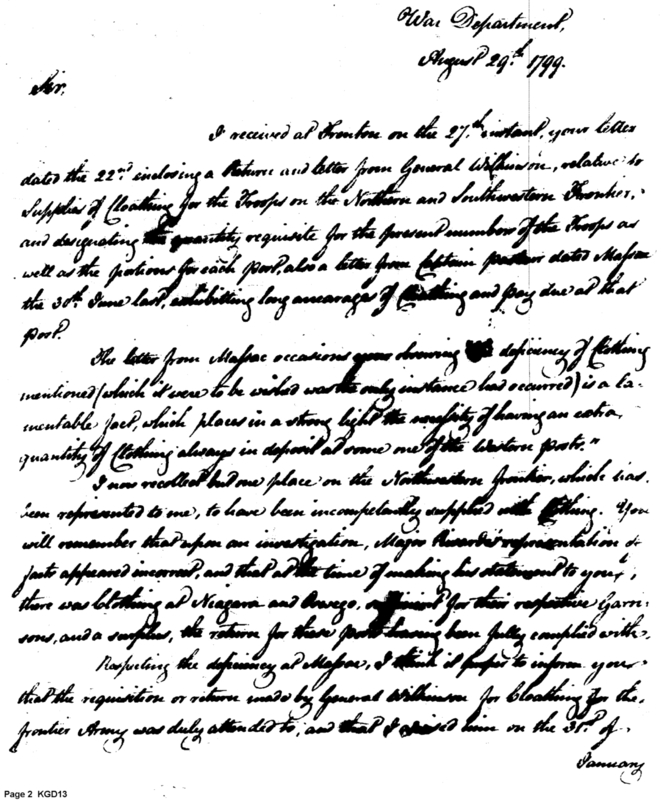 War Department,
August 29th. 1799.
Sir,
I received at Trenton on the 27th. instant, your letter
dated the 22nd. inclosing a Return and letter from General Wilkinson, relative to
Supplies of Cloathing for the Troops on the Northern and Southwestern Frontier,
and designating the quantity requisite for the present numbers of the Troops as
well as the portions for each post, also a letter from Captain dated Massac
the 30th June last, exhibiting long arrearages of Cloathing and pay due at that
post.
The letter from Massac occasions your observing deficiency of Clothing
mentioned (which it were to be wished was the only instance had occurred) is a la-
mentable fact, which places in a strong light the necessity of having an extra
quantity of Clothing always in deposit at some one of the Western Posts."
I now recollect but one place on the Northwestern frontier, which has
been represented to me, to have been incompetently supplied with Clothing. You
will remember that upon an investigation, Major Rivardi's representation of
facts appeared incorrect, and that at the time of making his statement to you,
there was Clothing at Niagara and Oswego, sufficient for their respective Garri-
sons, and a surplus, the return for these posts having been fully complied with.
Respecting the deficiency at Massac, I think it proper to inform you
that the requisition or return made by General Wilkinson for Cloathing for the
frontier Army was duly attended to, and that I advised him on the 31st. of
January
Page 2 KGD13